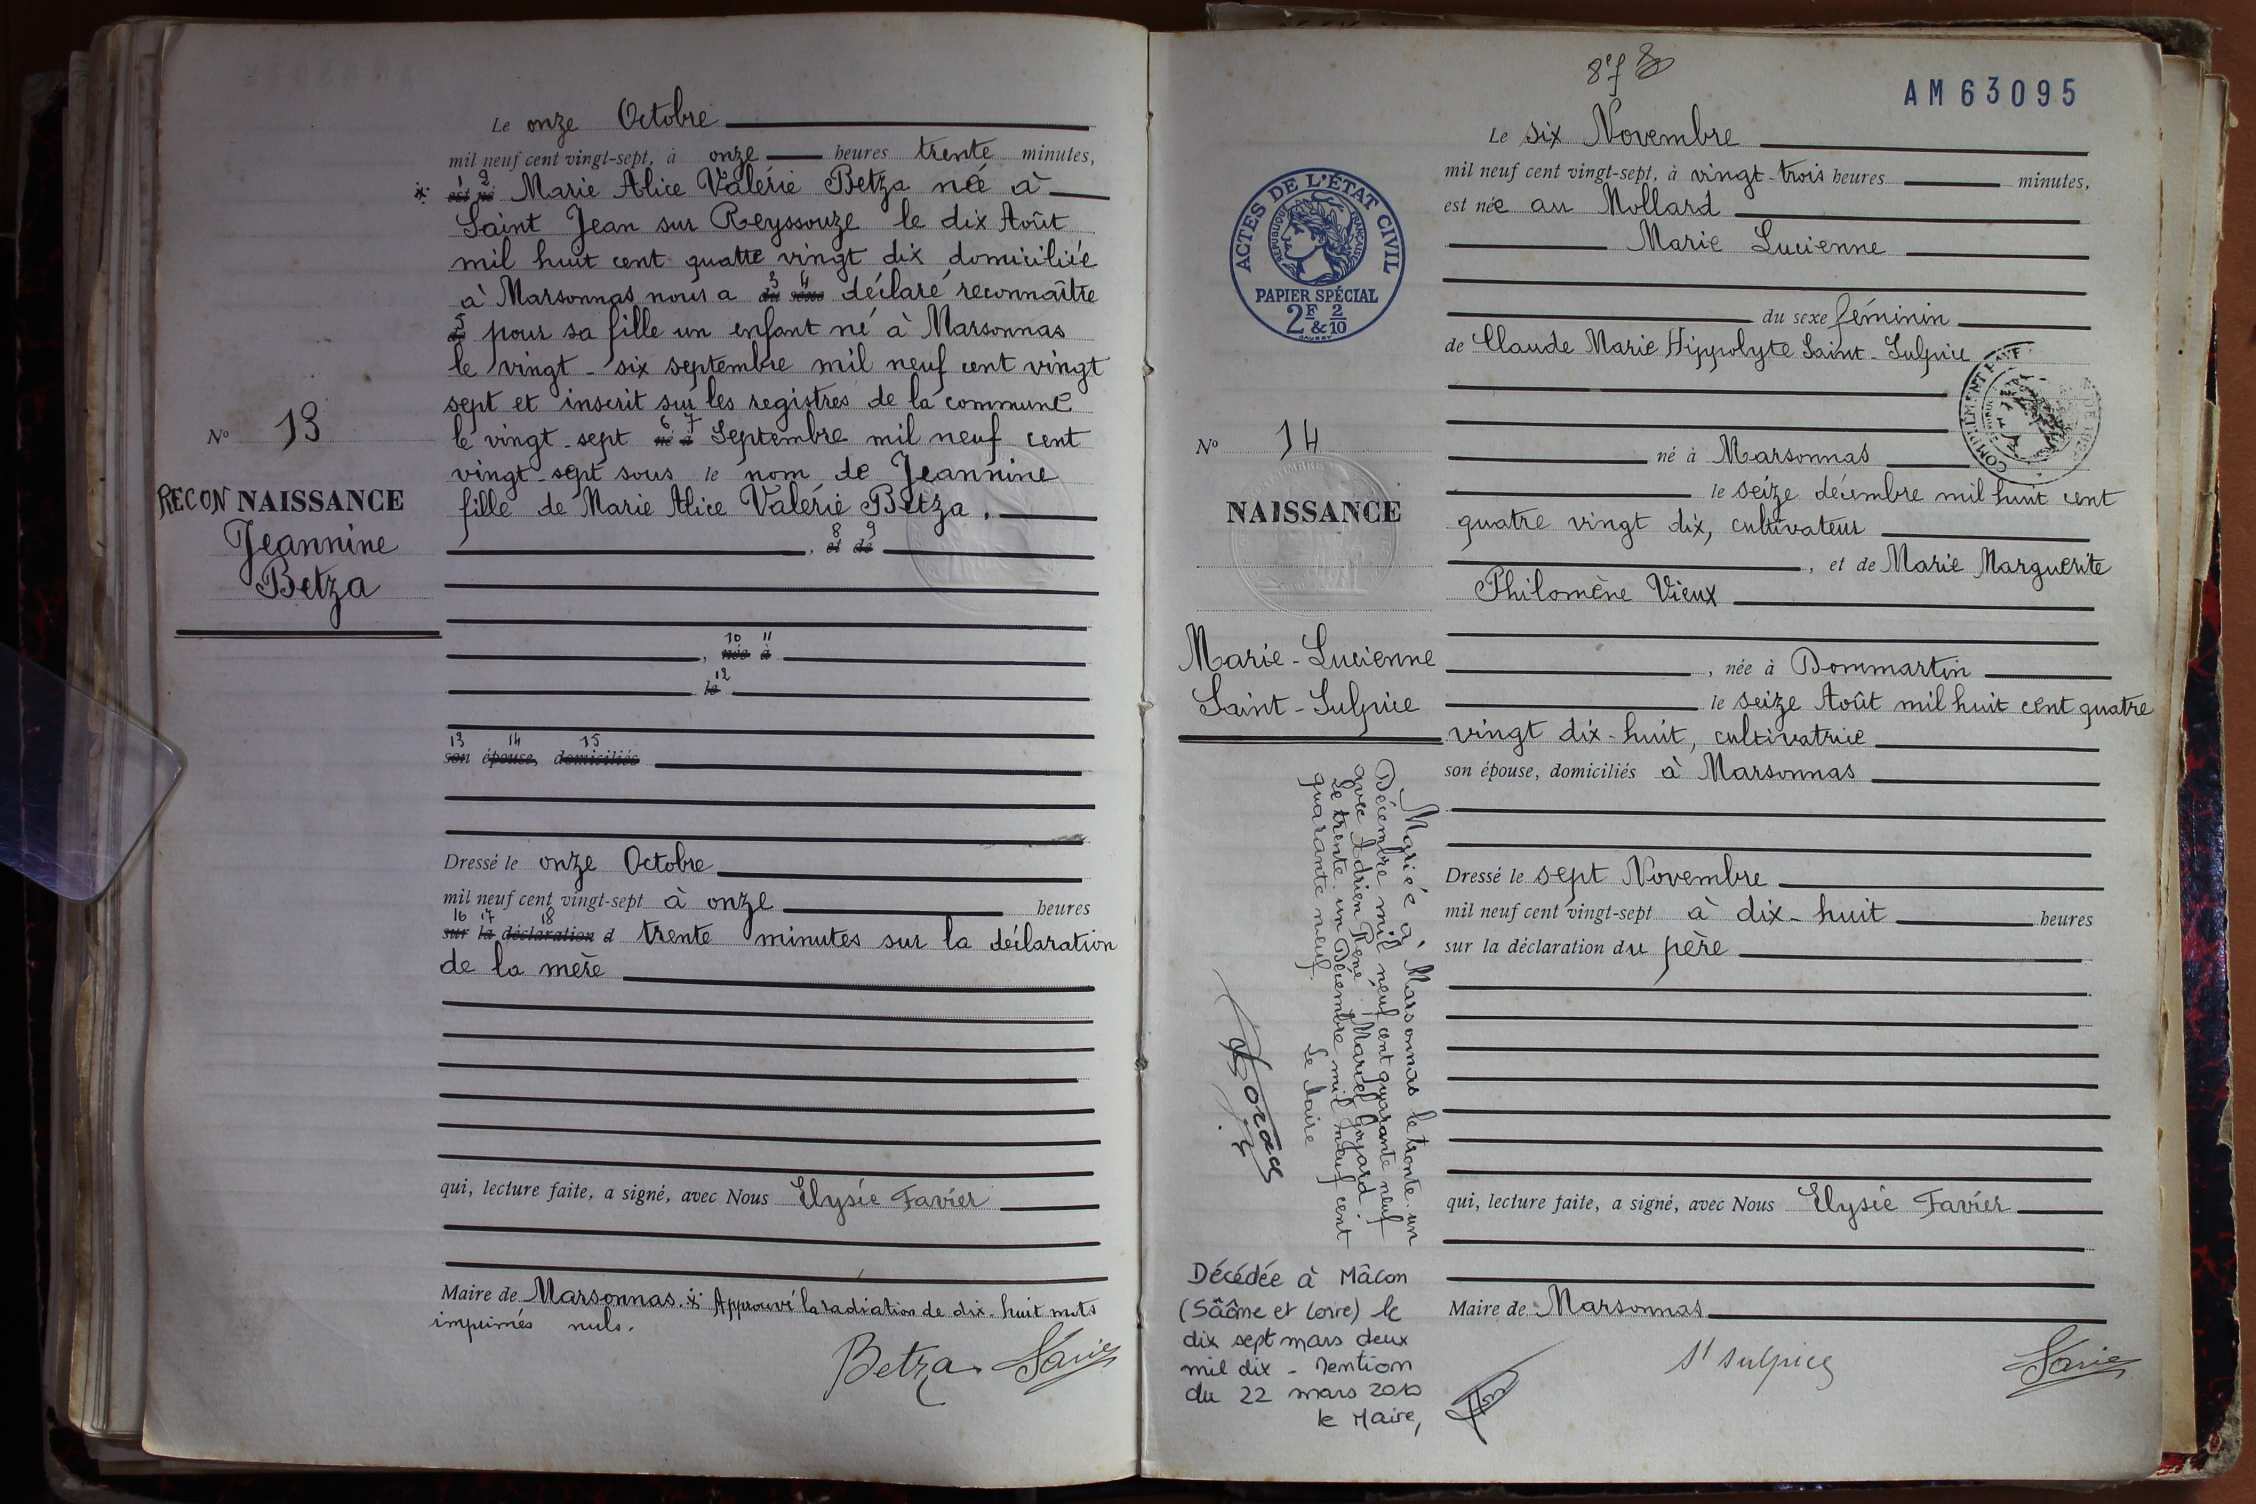 Le onze Octobre
mil neuf cent vingt-sept, à onze heures trente minutes,
1 2
est né Marie Alice Valérie Betza née à
Saint Jean sur Reyssouze le dix Août
mil huit cent quatre vingt dix domiciliée
3 4
à Marsonnas nous a du sexe déclaré reconnaître
5
de pour sa fille un enfant né à Marsonnas
le vingt-six septembre mil neuf cent vingt
sept et inscrit sur les registres de la commune
6 7
le vingt-sept né à Septembre mil neuf cent
vingt-sept sous le nom de Jeannine
fille de Marie Alice Valérie Betza.
8 9
, et de
10 11
, née à
12
le
13 14 15
son épouse, domiciliés
Dressé le onze Octobre
mil neuf cent vingt-sept à onze heures
16 17 18
sur la déclaration d trente minutes sur la déclaration
de la mère
qui, lecture faite, a signé, avec Nous Elysée Favier
Maire de Marsonnas. Approuvé la radiation de dix-huit mots
imprimés nuls.
Betza
No 13
RECONNAISSANCE
Jeannine
Betza
AM63095
Le six Novembre
mil neuf cent vingt-sept, à vingt-trois heures minutes,
est née au Mollard
Marie Lucienne
du sexe féminin
de Claude Marie Hippolyte Saint-Sulpice
né à Marsonnas
le seize décembre mil huit cent
quatre vingt dix, cultivateur
, et de Marie Marguerite
Philomène Vieux
, née à Dommartin
le seize Août mil huit cent quatre
vingt dix-huit, cultivatrice
son épouse, domiciliés à Marsonnas
Dressé le sept Novembre
mil neuf cent vingt-sept à dix-huit heures
sur la déclaration du père
qui, lecture faite, a signé, avec Nous Elysée Favier
Maire de Marsonnas
St Sulpice
ACTES DE L'ÉTAT CIVIL
RÉPUBLIQUE FRANÇAISE
PAPIER SPÉCIAL
2F & 2/10
No 14
NAISSANCE
Marie-Lucienne
Saint-Sulpice
Marié à Marsonnas le trente-un
Décembre mil neuf cent quarante neuf
avec Adrien René Marcel Goyard.
Le trente-un Décembre mil neuf cent
quarante neuf. Le Maire
Décédée à Mâcon
(Saône et Loire) le
dix sept mars deux
mil dix - Mention
du 22 mars 2010
le Maire,